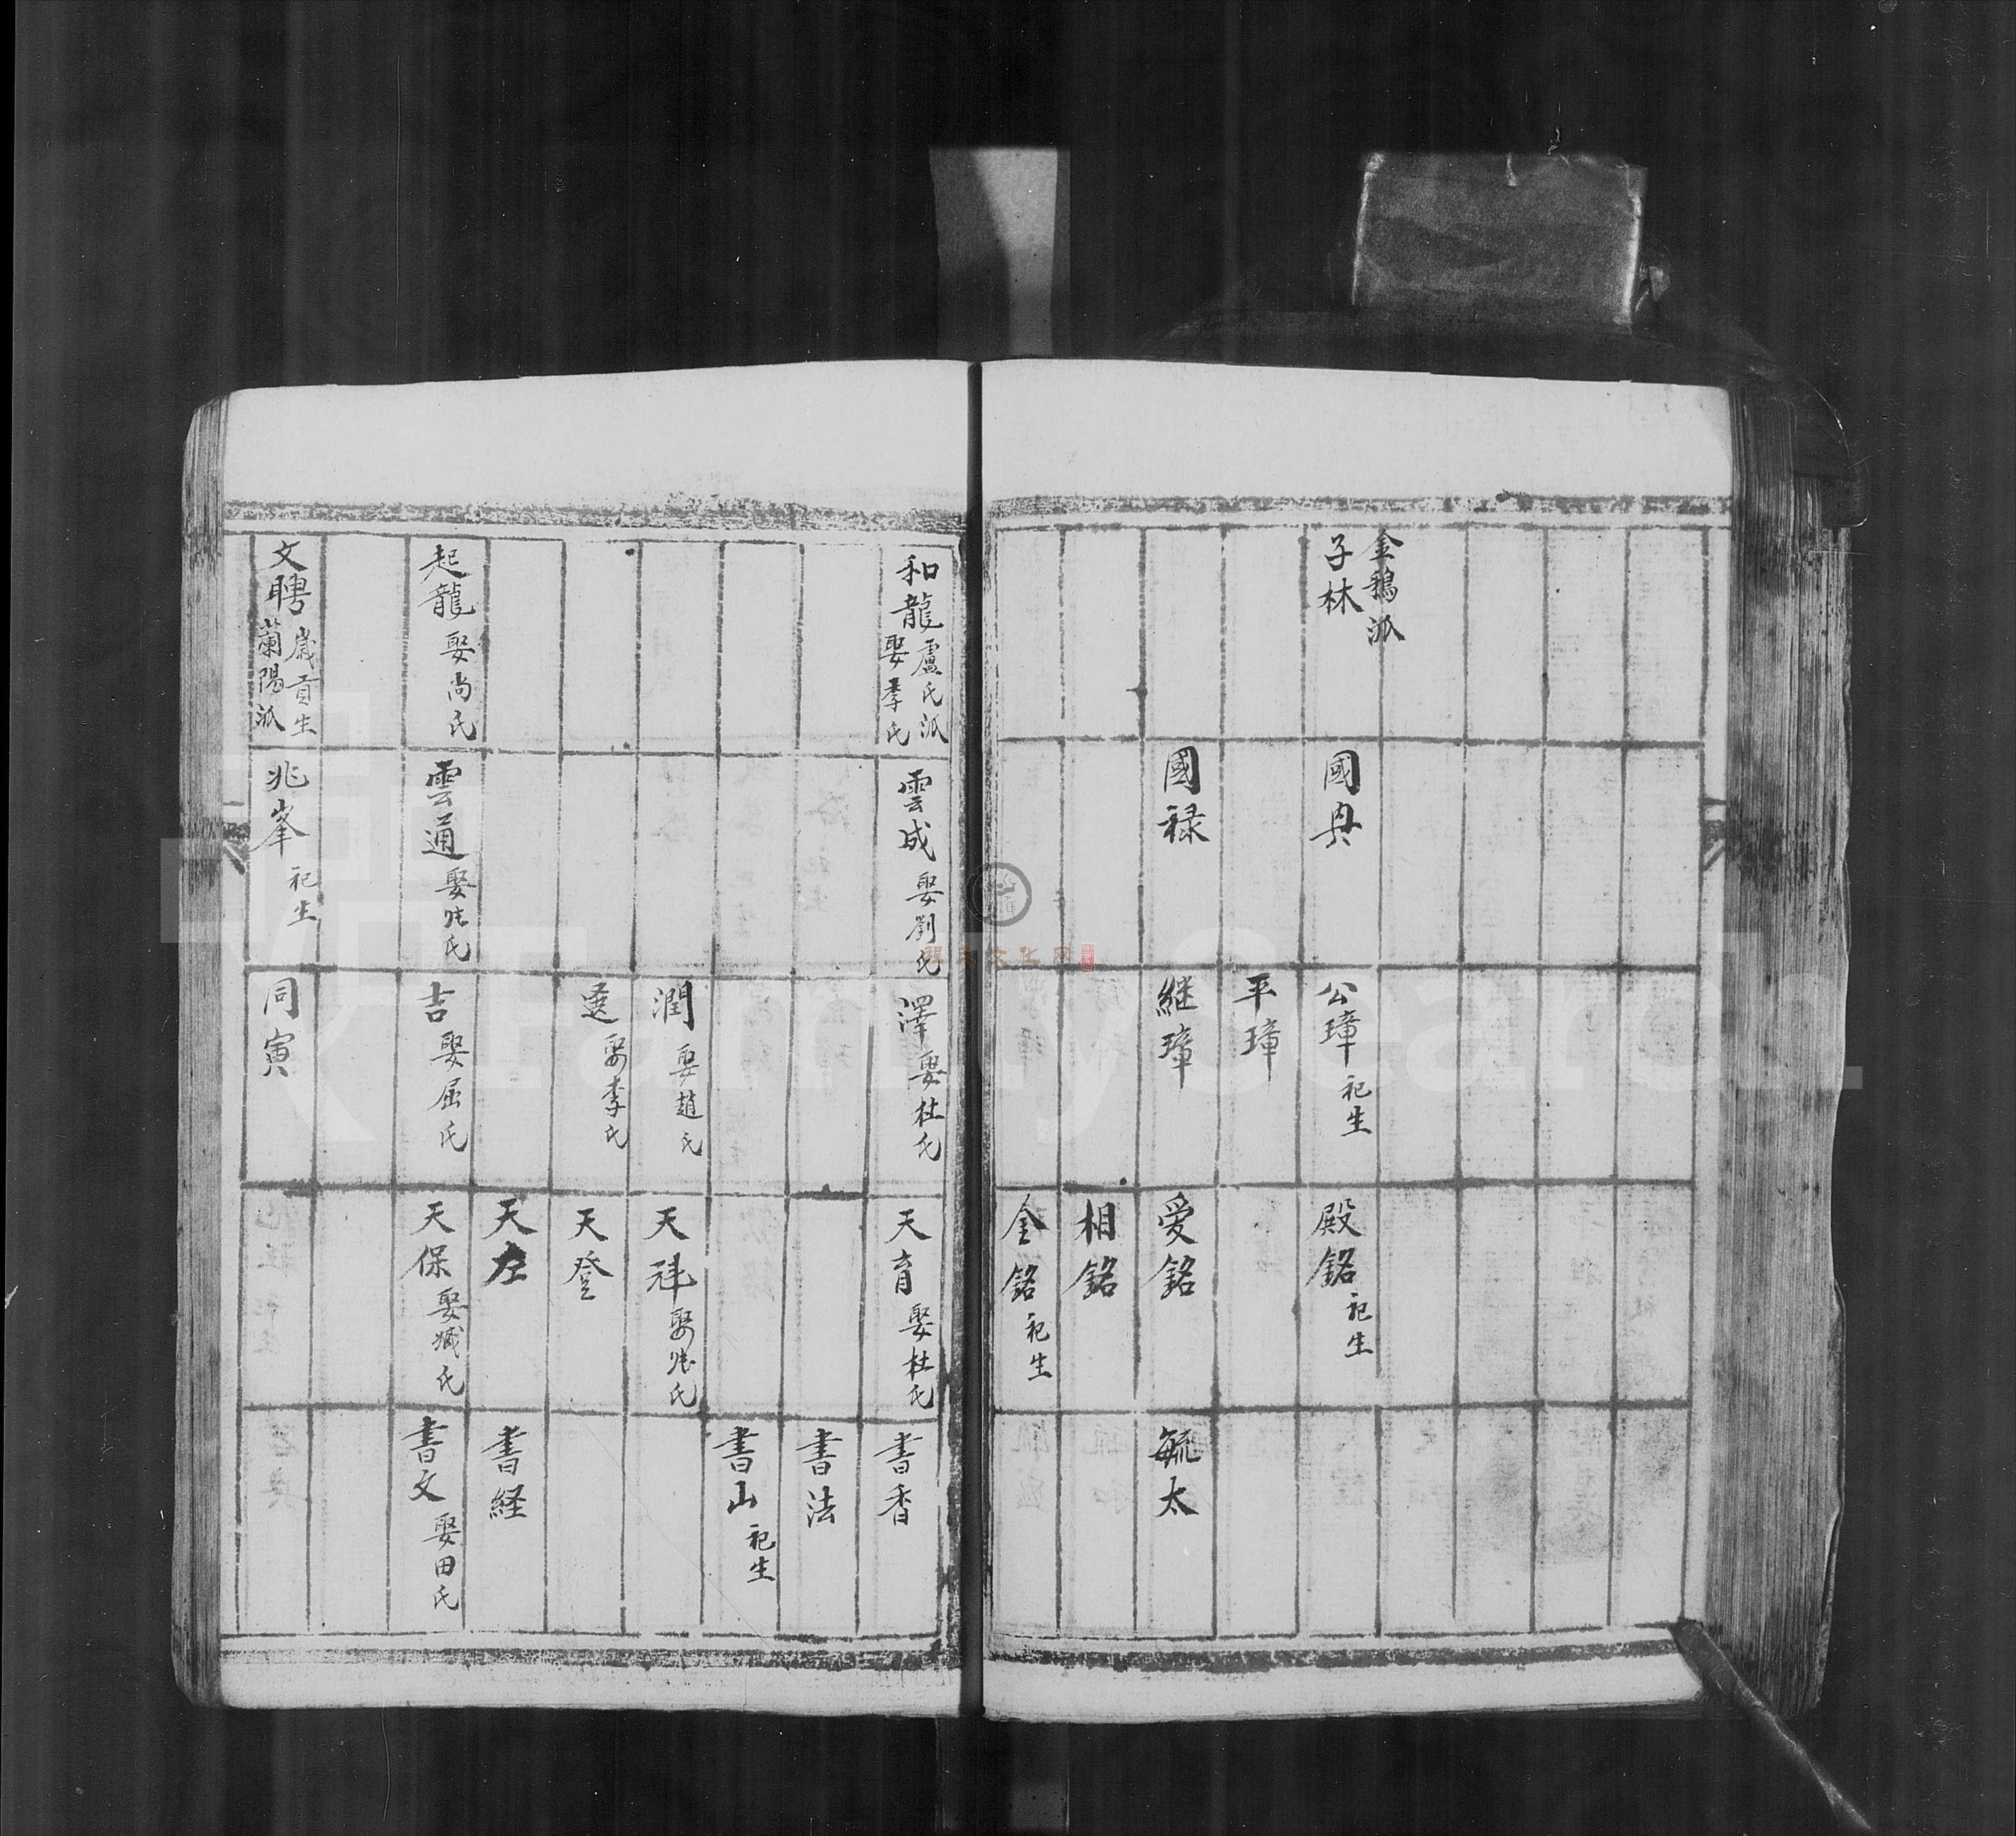 金鵝派
子林
國典
公璋 祀生
殿銘 祀生
平璋
國禄
継璋
愛銘
毓太
相銘
全銘 祀生
和龍 盧氏派
娶李氏
雲成 娶劉氏
澤 娶杜氏
天育 娶杜氏
書香
書法
書山 祀生
潤 娶趙氏
天祥 娶张氏
娶李氏
天登
天左
書経
起龍 娶尚氏
雲通 娶张氏
吉 娶屈氏
天保 娶臧氏
書文 娶田氏
文聘 歲貢生
蘭陽派
兆峯 祀生
同寅
FamilySearch